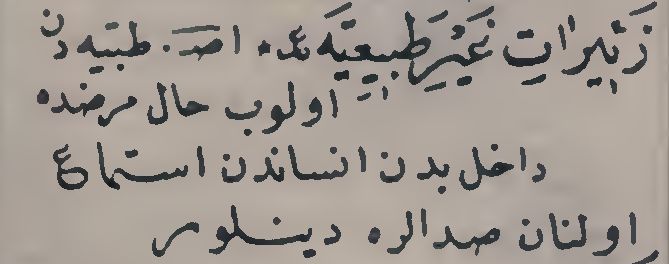 زَئِيرَاتِ غَيْرِ طَبِيعِيَّه ع. اصـ. طبيه دن
اولوب حال مرضده
داخل بدن انساندن استماع
اولنان صدالره دينلور